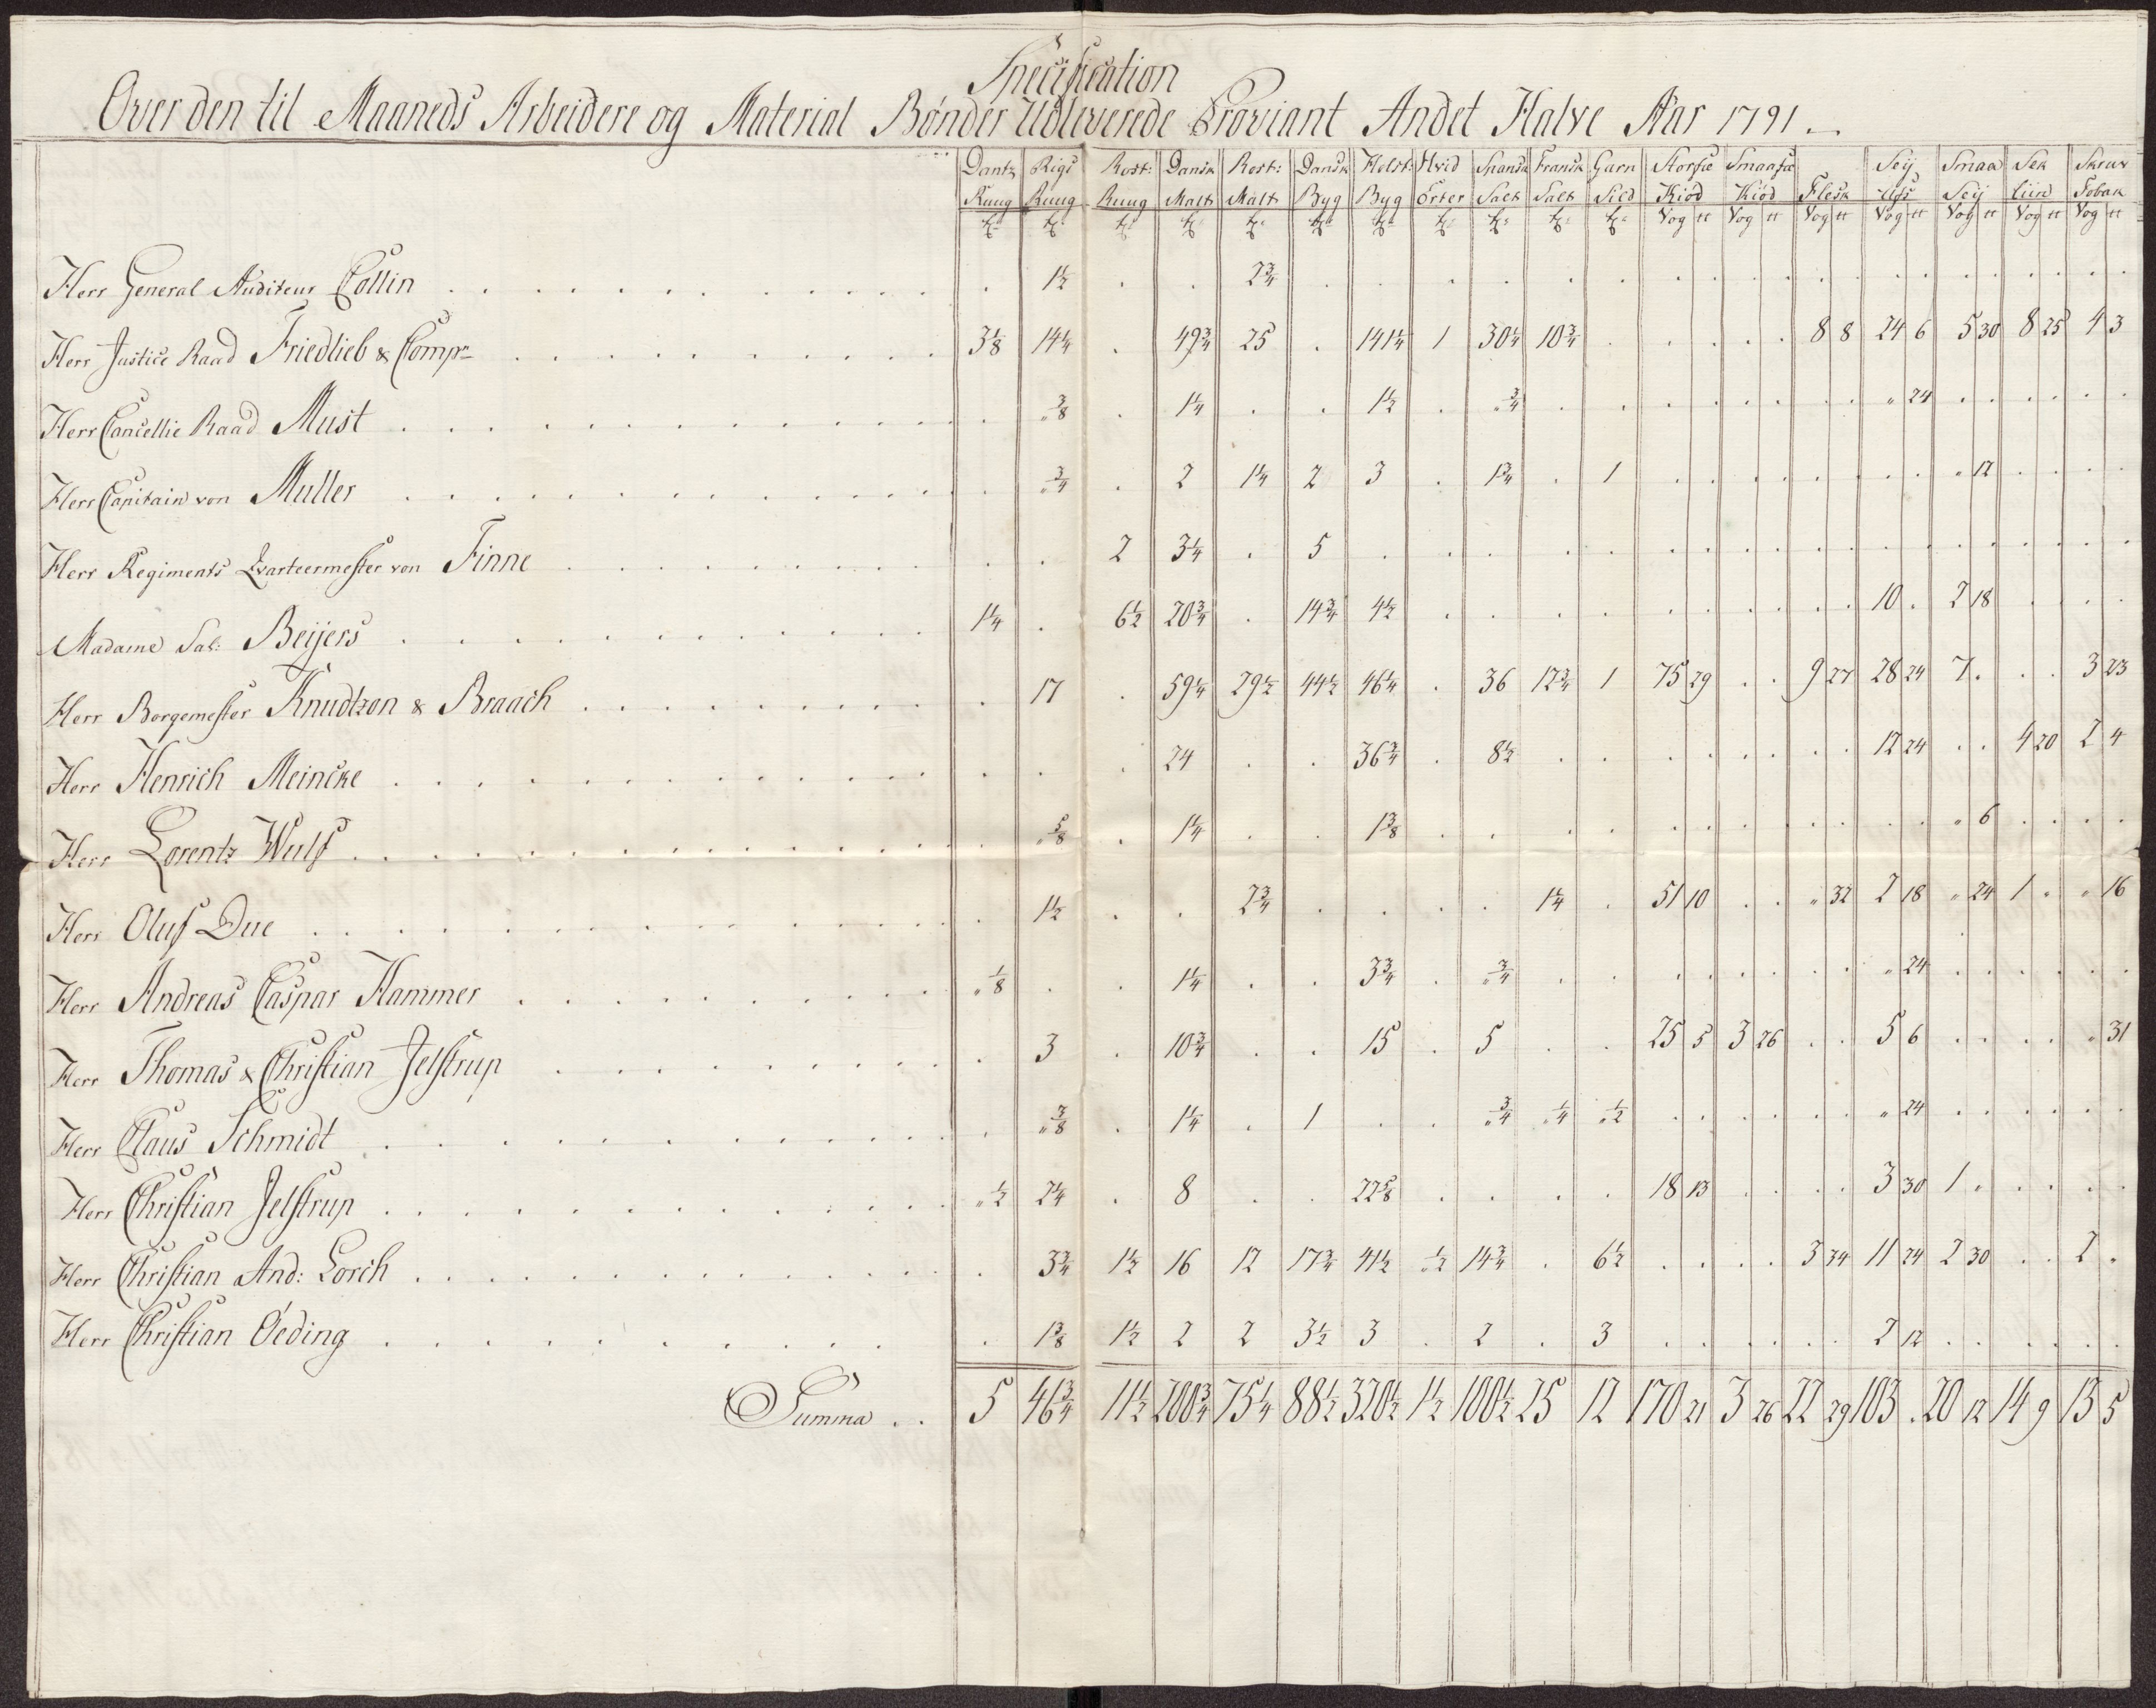 Specification
Over den til Maaneds Arbeidere og Material Bønder Udleverede Proviant Andet Halve Aar 1791.
Dantz Rigs Rost: Dansk Rost: Dansk Holst: Hvid Spansk Fransk Garn Storfæ Smaafæ Seij Smaa Sek Skruv
Ruug Ruug Ruug Malt Malt Byg Byg Erter Salt Salt Sild Kiöd Kiöd Flesk Seij Liin Tobak
Vog ℔ Vog ℔ Vog ℔ Vog ℔ Vog ℔ Vog ℔ Vog ℔
Herr General Auditeur Collin . 1½ . . 2¾ . . . . . . . . . . . . . . . . . . . .
Herr Justice Raad Friedlieb & Comp. 3⅛ 14¼ . 49¾ 25 . 141¼ 1 30¼ 10¾ . . . . . 8 8 24 6 5 30 8 25 4 3
Herr Cancellie Raad Must . „⅜ . 1¼ . . 1½ . „¾ . . . . . . . . „ 24 . . . . . .
Herr Capitain von Muller . „¾ . 2 1¼ 2 3 . 1¾ . 1 . . . . . . . . „ 12 . . . .
Herr Regiments Qvarteermester von Finne . . 2 3¼ . 5 . . . . . . . . . . . . . . . . . . .
Madame Sal: Beijers 1¼ . 6½ 20¾ . 14¾ 4½ . . . . . . . . . . 10 . 2 18 . . . .
Herr Borgemester Knudtzon & Braach . 17 . 59¼ 29½ 44½ 46¼ . 36 12¾ 1 75 29 . . 9 27 28 24 7 . . . 3 23
Herr Henrich Meincke . . . 24 . . 36¾ . 8½ . . . . . . . . 12 24 . . 4 20 2 4
Herr Lorentz Wulf . „⅝ . 1¼ . . 1⅜ . . . . . . . . . . . . „ 6 . . . .
Herr Oluf Due . 1½ . . 2¾ . . . . 1¼ . 51 10 . . „ 32 2 18 „ 24 1 . „ 16
Herr Andreas Caspar Hammer „⅛ . . 1¼ . . 3¾ . „¾ . . . . . . . . „ 24 . . . . . .
Herr Thomas & Christian Jelstrup . 3 . 10¾ . . 15 . 5 . . 25 5 3 26 . . 5 6 . . . . „ 31
Herr Claus Schmidt . „⅞ . 1¼ . 1 . . „¾ „¼ „½ . . . . . . „ 24 . . . . . .
Herr Christian Jelstrup „½ 2¼ . 8 . . 22⅝ . . . . 18 13 . . . . 3 30 1 . . . . .
Herr Christian And: Lorch . 3¾ 1½ 16 12 17¾ 41½ „½ 14¾ . 6½ . . . . 3 34 11 24 2 30 . . 2 .
Herr Christian Öeding . 1⅜ 1½ 2 2 3½ 3 . 2 . 3 . . . . . . 2 12 . . . . . .
Summa . . 5 46¾ 11½ 200¾ 75¼ 88½ 320½ 1½ 100½ 25 12 170 21 3 26 22 29 103 . 20 12 14 9 13 5